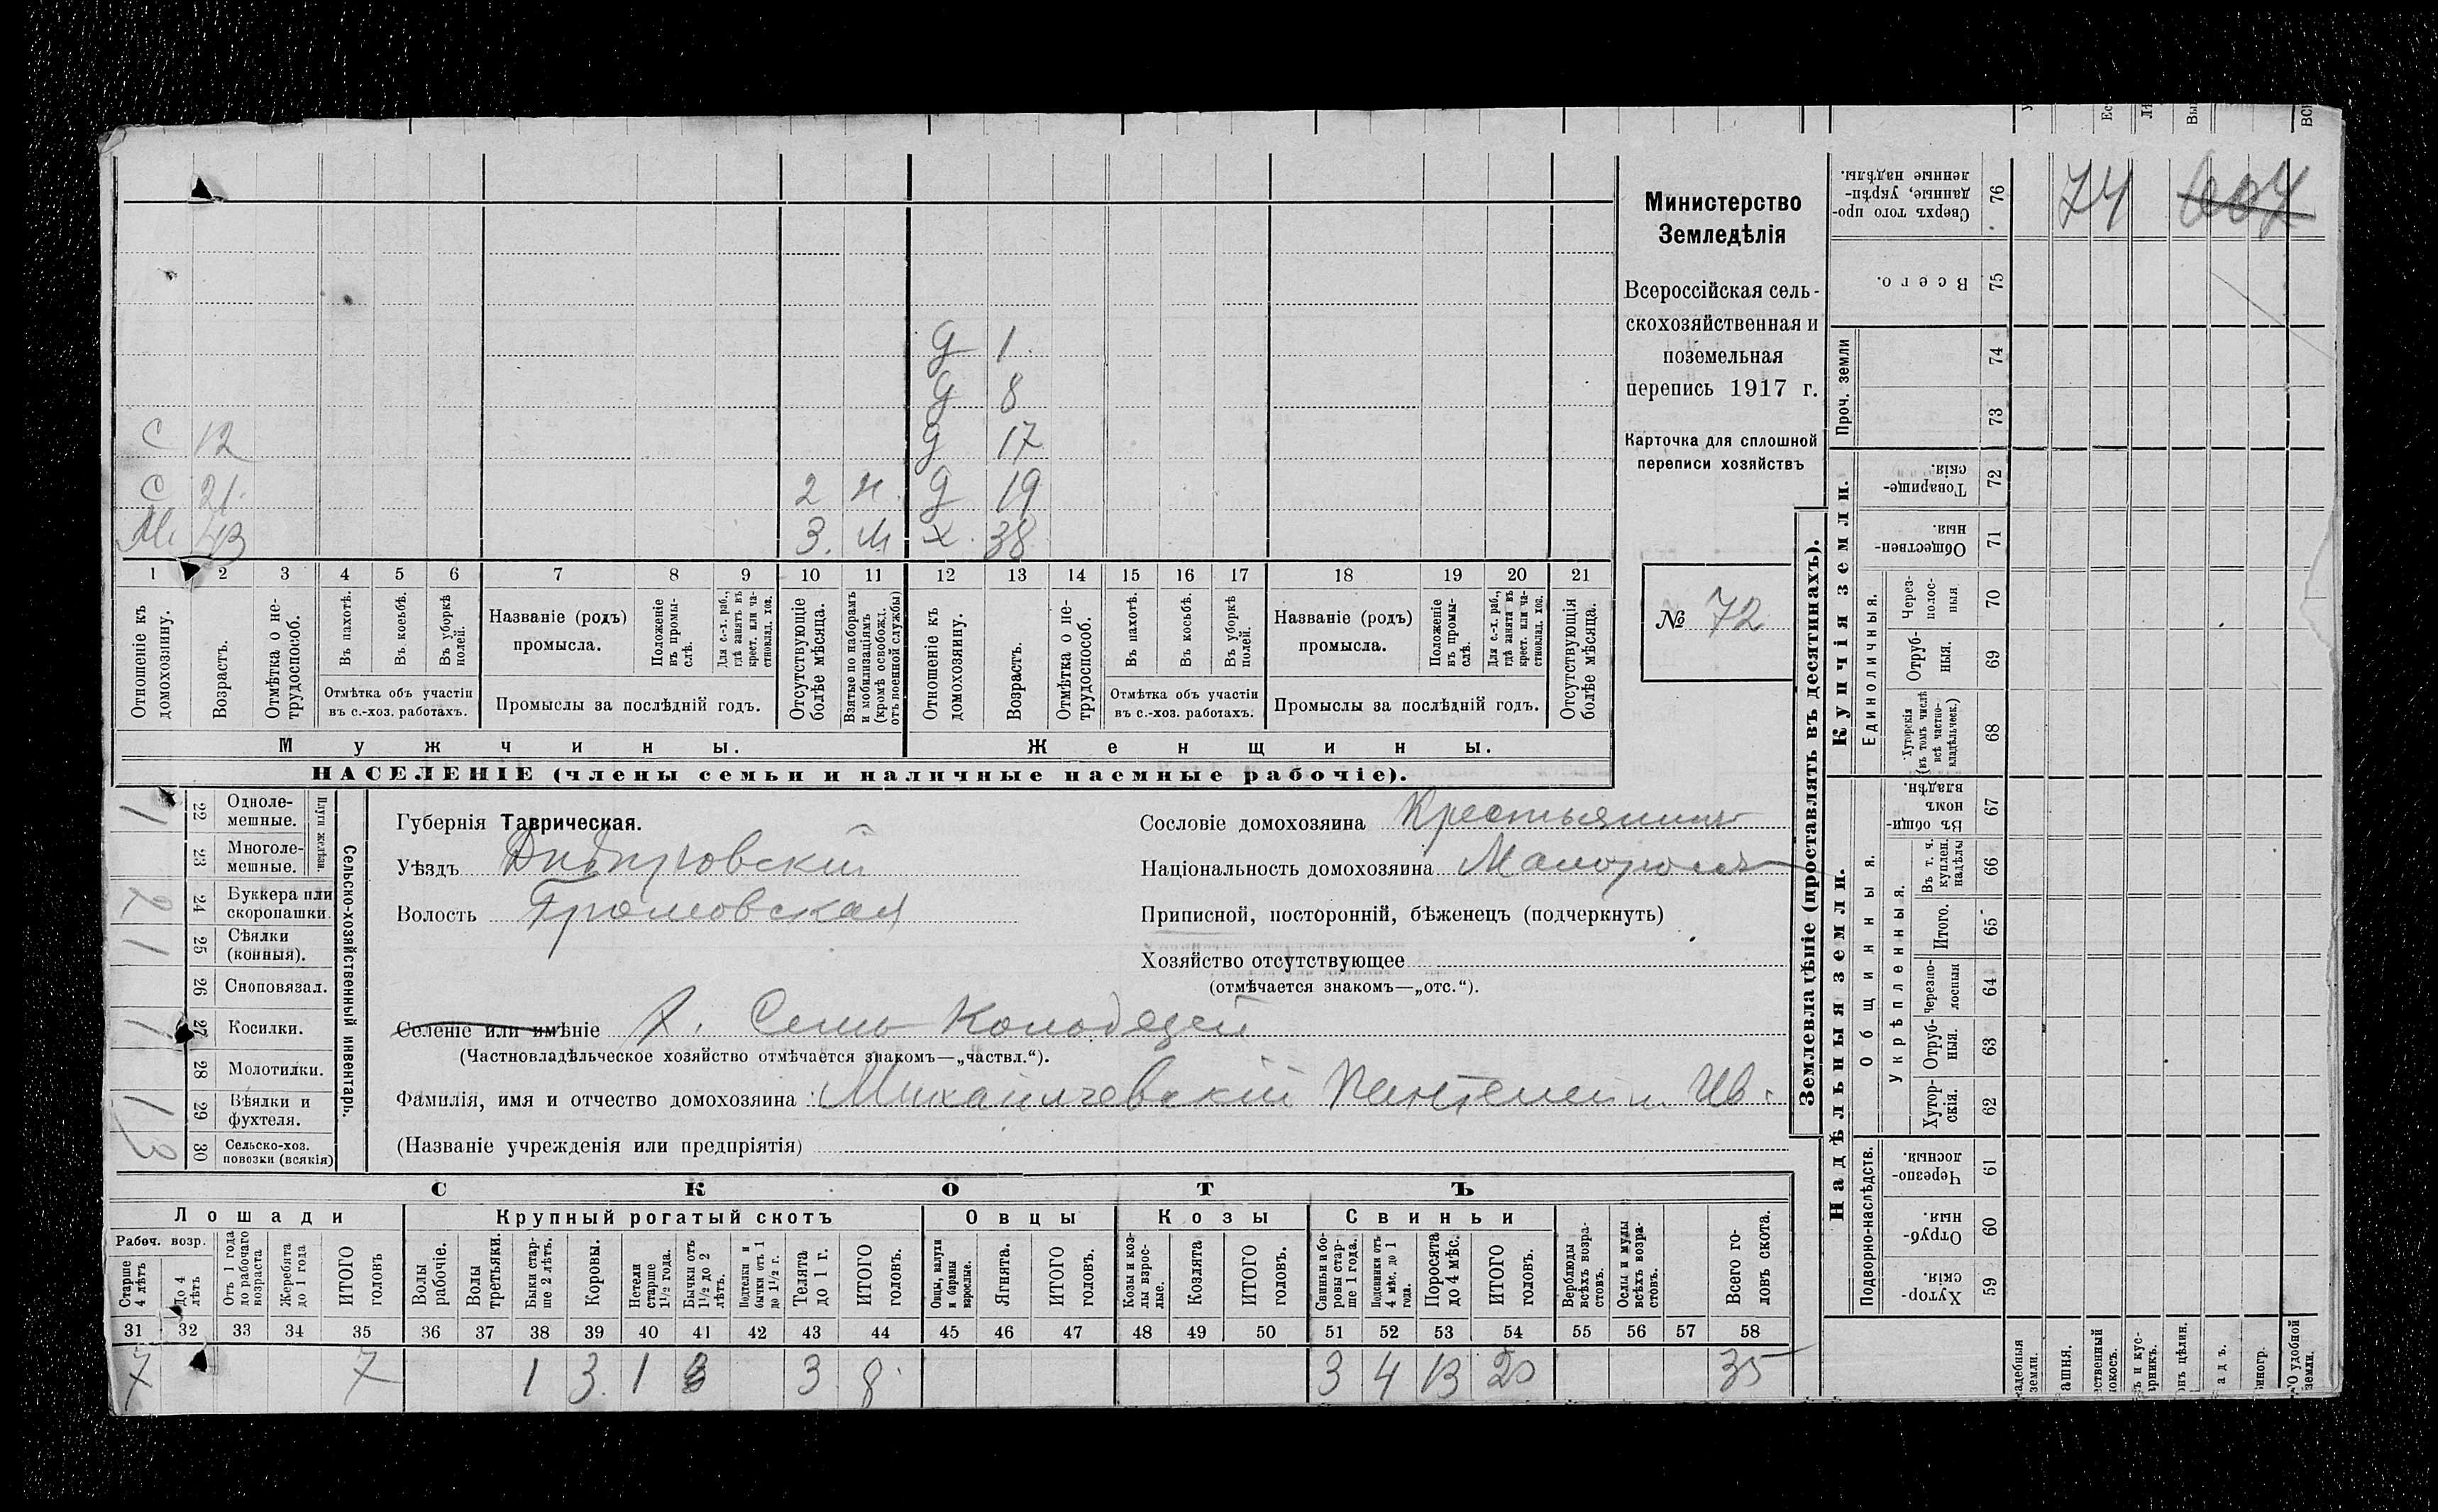 Министерство
Земледѣлія
Всероссійская сель-
скохозяйственная и
поземельная
перепись 1917 г.
Карточка для сплошной
переписи хозяйствъ
№ 72
д 1
д 8
с 12 д 17
с 21 2 д 19
М 43 3. М х. 38
1 2 3 4 5 6 7 8 9 10 11 12 13 14 15 16 17 18 19 20 21
Отношеніе къ домохозяину.
Возрастъ.
Отмѣтка о не-трудоспособ.
Въ пахотѣ.
Въ косьбѣ.
Въ уборкѣ полей.
Отмѣтка объ участіи
въ с.-хоз. работахъ.
Названіе (родъ)
промысла.
Положеніе въ промы-слѣ.
Для с.-х. раб., гдѣ занятъ въ крест. или ча-стновлад. хоз.
Промыслы за послѣдній годъ.
Отсутствующіе болѣе мѣсяца.
Взятые по наборамъ и мобилизаціямъ (кромѣ освобожд. отъ военной службы)
Отношеніе къ домохозяину.
Возрастъ.
Отмѣтка о не-трудоспособ.
Въ пахотѣ.
Въ косьбѣ.
Въ уборкѣ полей.
Отмѣтка объ участіи
въ с.-хоз. работахъ.
Названіе (родъ)
промысла.
Положеніе въ промы-слѣ.
Для с.-х. раб., гдѣ занята въ крест. или ча-стновлад. хоз.
Промыслы за послѣдній годъ.
Отсутствующія болѣе мѣсяца.
Мужчины. Женщины.
НАСЕЛЕНІЕ (члены семьи и наличные наемные рабочіе).
Сельско-хозяйственный инвентарь.
Плуги желѣзн.
1 22 Одноле-мешные.
23 Многоле-мешные.
2 24 Буккера или скоропашки.
1 25 Сѣялки (конныя).
26 Сноповязал.
1 27 Косилки.
28 Молотилки.
1 29 Вѣялки и фухтеля.
3 30 Сельско-хоз. повозки (всякія)
Губернія Таврическая.
Уѣздъ Днѣпровскій
Волость Громовская
Селеніе или имѣніе х. Семь Колодезей
(Частновладѣльческое хозяйство отмѣчается знакомъ—„частвл.“).
Фамилія, имя и отчество домохозяина Михайличевскій Пантелей Ив.
(Названіе учрежденія или предпріятія)
Сословіе домохозяина Крестьянинъ
Національность домохозяина Малороссъ
Приписной, посторонній, бѣженецъ (подчеркнуть)
Хозяйство отсутствующее
(отмѣчается знакомъ—„отс.“).
СКОТЪ
Лошади Крупный рогатый скотъ Овцы Козы Свиньи
Рабоч. возр.
Старше 4 лѣтъ
До 4 лѣтъ
Отъ 1 года до рабочаго возраста
Жеребята до 1 года
ИТОГО головъ
Волы рабочіе.
Волы третьяки.
Быки стар-ше 2 лѣтъ.
Коровы.
Нетели старше 1½ года.
Бычки отъ 1½ до 2 лѣтъ.
Подтелки и бычки отъ 1 до 1½ г.
Телята до 1 г.
ИТОГО головъ.
Овцы, валухи и бараны взрослые.
Ягнята.
ИТОГО головъ.
Козы и коз-лы взрос-лые.
Козлята
ИТОГО головъ.
Свиньи и бо-ровы стар-ше 1 года.
Подсвинки отъ 4 мѣс. до 1 года.
Поросята до 4 мѣс.
ИТОГО головъ.
Верблюды всѣхъ возра-стовъ.
Ослы и мулы всѣхъ возра-стовъ.
Всего го-ловъ скота.
31 32 33 34 35 36 37 38 39 40 41 42 43 44 45 46 47 48 49 50 51 52 53 54 55 56 57 58
7 7 1 3 1 3 8 3 4 13 20 35
Землевладѣніе (проставлять въ десятинахъ).
Сверхъ того про-данные, укрѣп-ленные надѣлы. 76 74
Всего. 75
Проч. земли 74 73
Купчія земли.
Товарище-скія. 72
Обществен-ныя. 71
Единоличныя.
Через-полос-ныя 70
Отруб-ныя. 69
Хуторскія (въ томъ числѣ всѣ частно-владѣльческ.) 68
Надѣльныя земли.
Общинныя.
Въ общин-номъ владѣн. 67
Укрѣпленныя.
Въ т. ч. куплен. надѣлы 66
Итого. 65
Черезпо-лосныя 64
Отруб-ныя. 63
Хутор-скія. 62
Подворно-наслѣдств.
Черезпо-лосныя. 61
Отруб-ныя. 60
Хутор-скія. 59